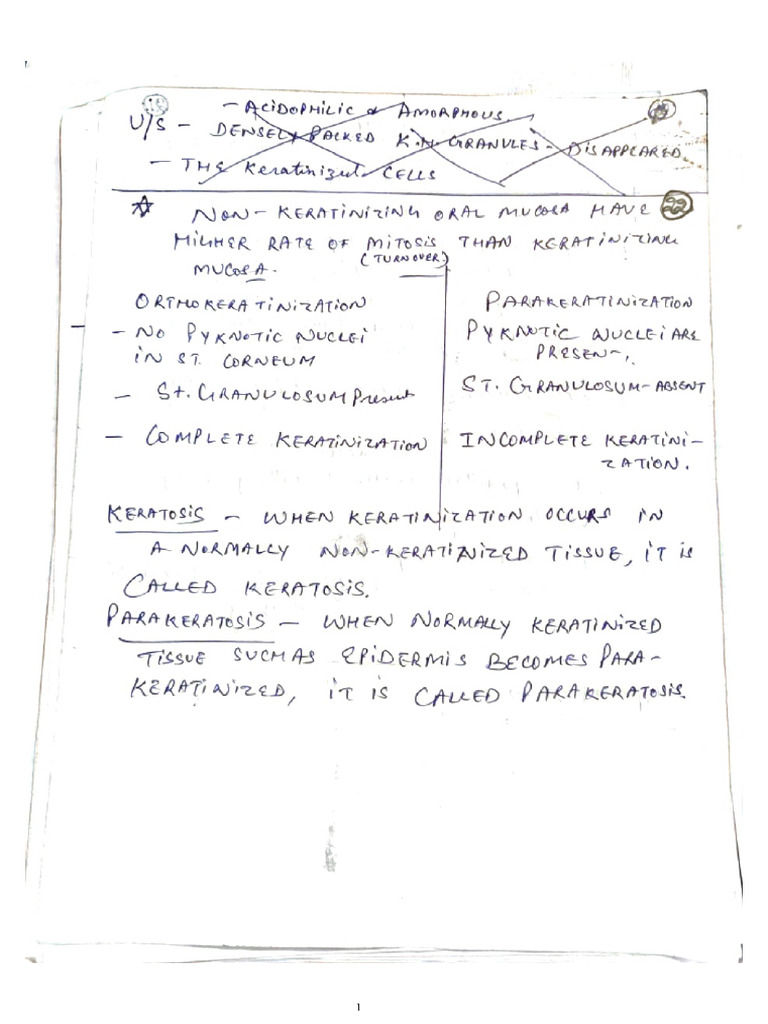 - ACIDOPHILIC & AMORPHOUS.
U/S - DENSELY PACKED K.H. GRANULES - DISAPPEARED.
- THE Keratinized CELLS
☆ NON-KERATINIZING ORAL MUCOSA HAVE 22
HIGHER RATE OF MITOSIS THAN KERATINIZING
(TURNOVER)
MUCOSA.
ORTHOKERATINIZATION PARAKERATINIZATION
- NO PYKNOTIC NUCLEI PYKNOTIC NUCLEI ARE
IN ST. CORNEUM PRESENT.
- St. GRANULOSUM Present ST. GRANULOSUM - ABSENT
- COMPLETE KERATINIZATION INCOMPLETE KERATINI-
ZATION.
KERATOSIS - WHEN KERATINIZATION OCCURS IN
A NORMALLY NON-KERATINIZED TISSUE, IT IS
CALLED KERATOSIS.
PARAKERATOSIS - WHEN NORMALLY KERATINIZED
TISSUE SUCH AS EPIDERMIS BECOMES PARA-
KERATINIZED, IT IS CALLED PARAKERATOSIS.
1